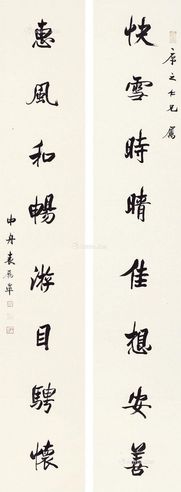 快雪時晴佳想安善
彥之仁兄屬
惠風和暢游目騁懷
中舟袁勵準